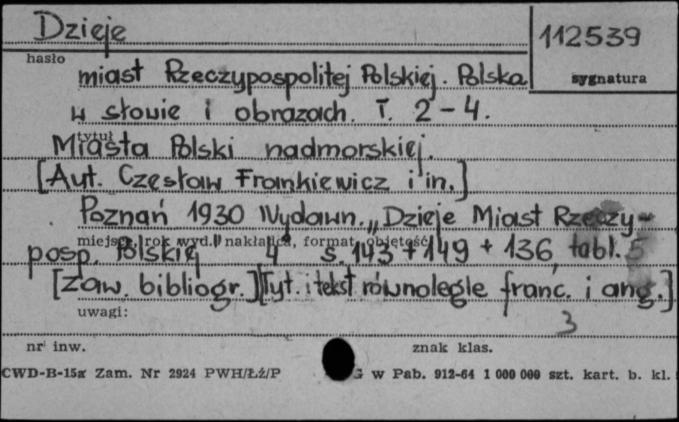 Dzieje
112539
hasło
miast Rzeczypospolitej Polskiej. Polska
sygnatura
w słowie i obrazach. T. 2-4.
tytuł
Miasta Polski nadmorskiej.
[Aut. Czesław Frankiewicz i in.]
Poznań 1930 Wydawn. "Dzieje Miast Rzeczy-
miejsce, rok wyd., nakładca, format, objętość
posp. Polskiej" 4° s. 143+149+136, tabl. 5
[zaw. bibliogr.] [Tyt. i tekst równolegle franc. i ang.]
uwagi:
3
nr inw.
znak klas.
CWD-B-15a Zam. Nr 2924 PWH/Łż/P
G w Pab. 912-64 1 000 000 szt. kart. b. kl.